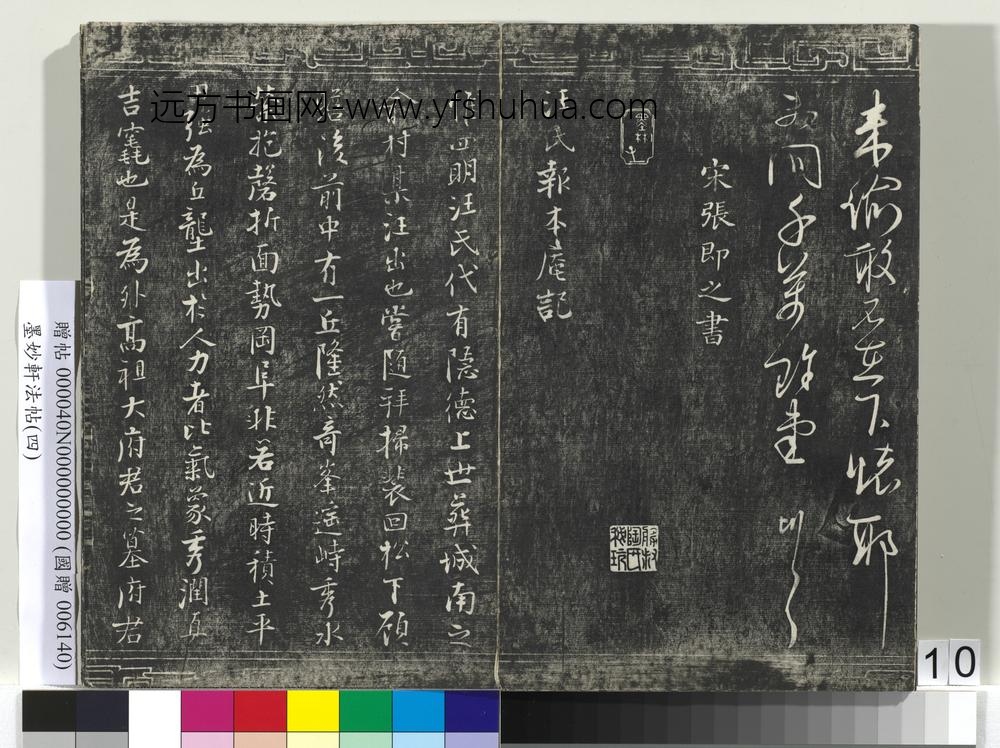 远方书画网-www.yfshuhua.com
来諭敢不在下懷耶
未間千萬珍重
宋張即之書
汪氏報本庵記
四明汪氏代有隱德上世葬城南之
村某汪出也嘗随拜掃裴回松下顧
後前中有一丘隆然奇峯遥峙秀水
抱磬折面勢岡阜非若近時積土平
强為丘壟出於人力者比氣象秀潤真
吉竁也是為外髙祖大府君之墓府君
贈帖 000040N000000000 (國贈 006140)
墨妙軒法帖(四)
10